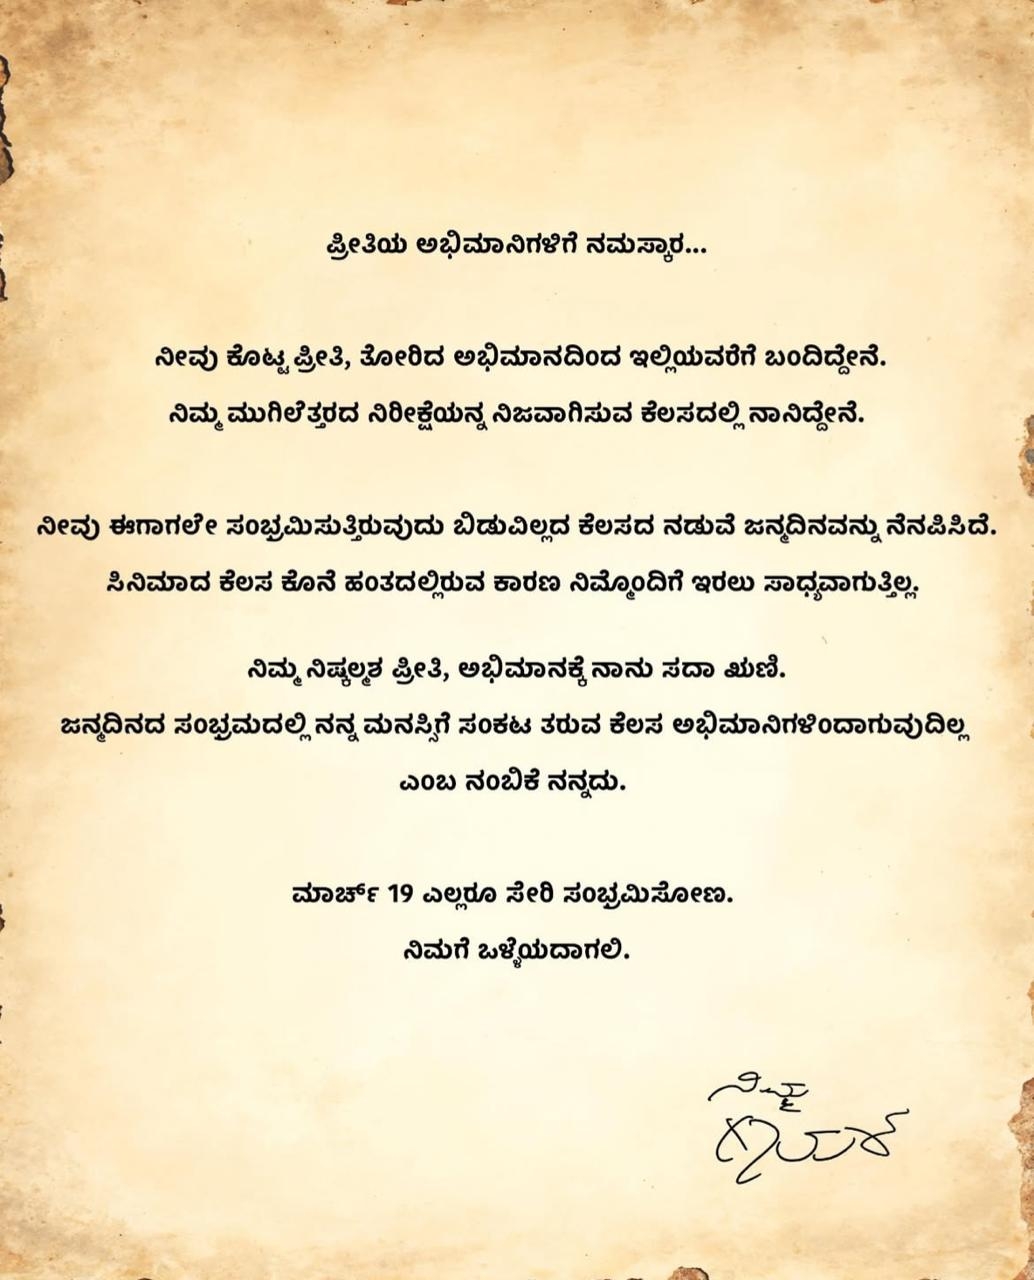 ಪ್ರೀತಿಯ ಅಭಿಮಾನಿಗಳಿಗೆ ನಮಸ್ಕಾರ...
ನೀವು ಕೊಟ್ಟ ಪ್ರೀತಿ, ತೋರಿದ ಅಭಿಮಾನದಿಂದ ಇಲ್ಲಿಯವರೆಗೆ ಬಂದಿದ್ದೇನೆ.
ನಿಮ್ಮ ಮುಗಿಲೆತ್ತರದ ನಿರೀಕ್ಷೆಯನ್ನ ನಿಜವಾಗಿಸುವ ಕೆಲಸದಲ್ಲಿ ನಾನಿದ್ದೇನೆ.
ನೀವು ಈಗಾಗಲೇ ಸಂಭ್ರಮಿಸುತ್ತಿರುವುದು ಬಿಡುವಿಲ್ಲದ ಕೆಲಸದ ನಡುವೆ ಜನ್ಮದಿನವನ್ನು ನೆನಪಿಸಿದೆ.
ಸಿನಿಮಾದ ಕೆಲಸ ಕೊನೆ ಹಂತದಲ್ಲಿರುವ ಕಾರಣ ನಿಮ್ಮೊಂದಿಗೆ ಇರಲು ಸಾಧ್ಯವಾಗುತ್ತಿಲ್ಲ.
ನಿಮ್ಮ ನಿಷ್ಕಲ್ಮಶ ಪ್ರೀತಿ, ಅಭಿಮಾನಕ್ಕೆ ನಾನು ಸದಾ ಋಣಿ.
ಜನ್ಮದಿನದ ಸಂಭ್ರಮದಲ್ಲಿ ನನ್ನ ಮನಸ್ಸಿಗೆ ಸಂಕಟ ತರುವ ಕೆಲಸ ಅಭಿಮಾನಿಗಳಿಂದಾಗುವುದಿಲ್ಲ
ಎಂಬ ನಂಬಿಕೆ ನನ್ನದು.
ಮಾರ್ಚ್ 19 ಎಲ್ಲರೂ ಸೇರಿ ಸಂಭ್ರಮಿಸೋಣ.
ನಿಮಗೆ ಒಳ್ಳೆಯದಾಗಲಿ.
ನಿಮ್ಮ